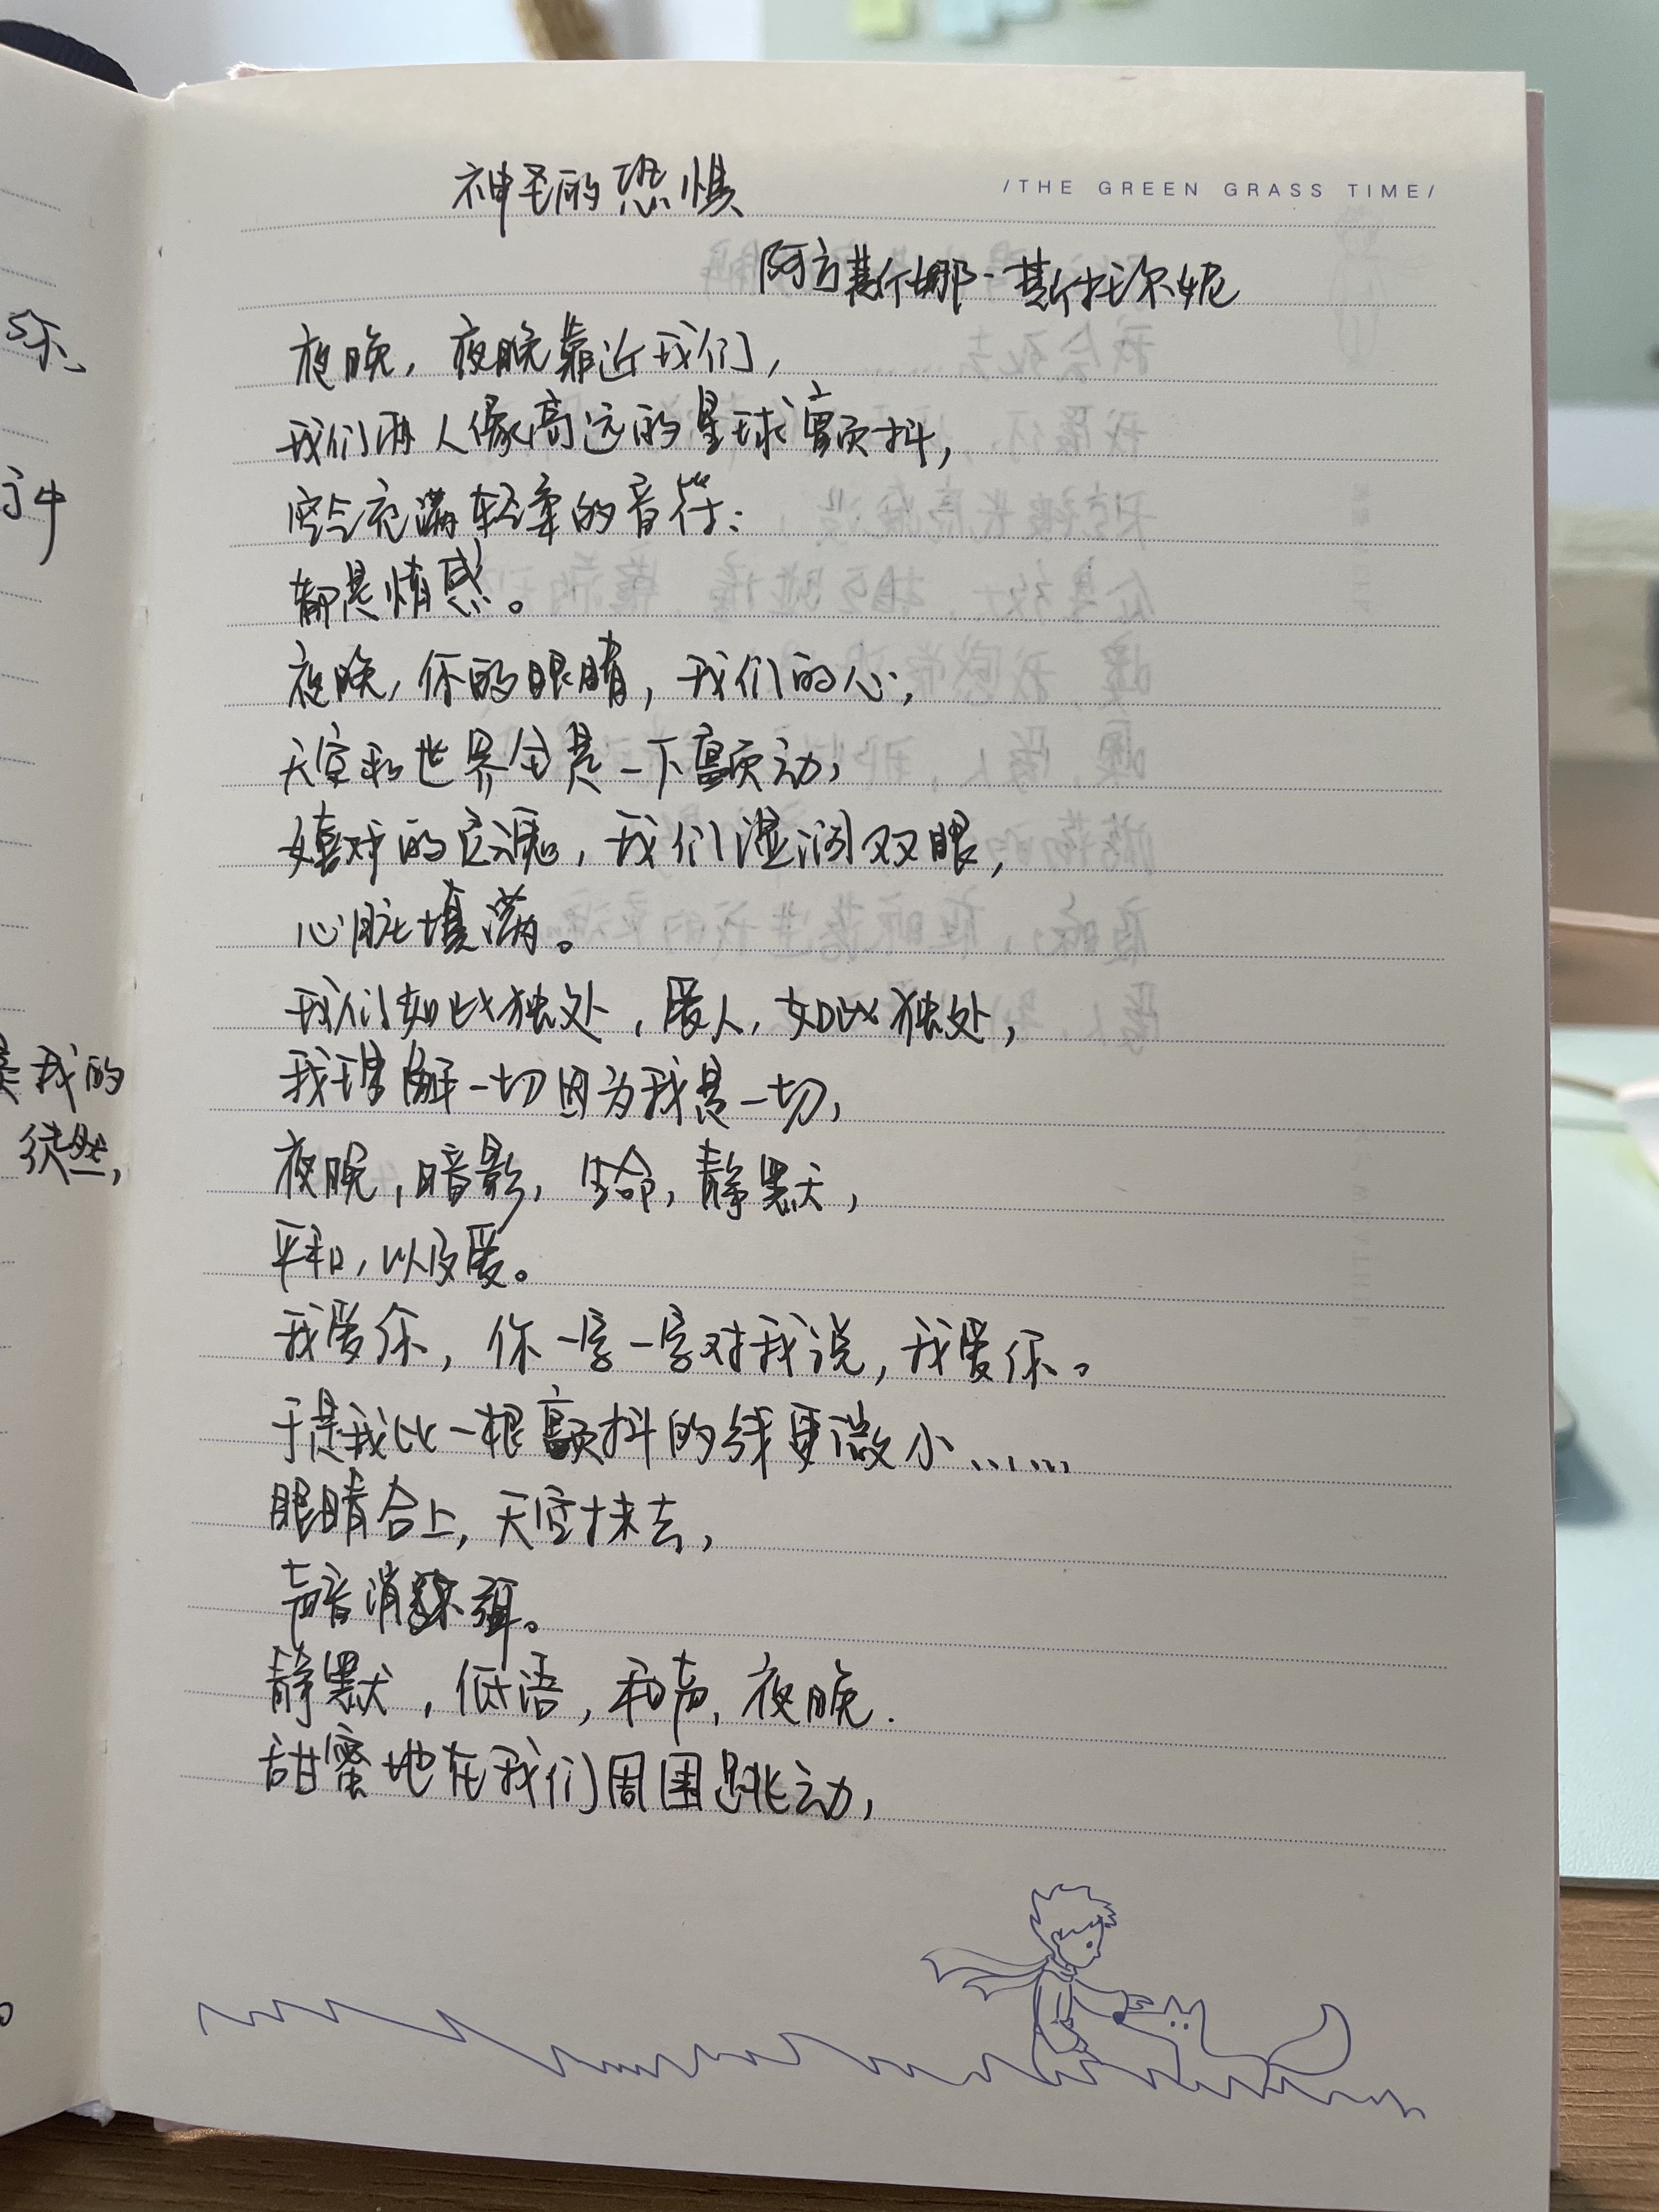 /THE GREEN GRASS TIME/
神圣的恐惧
阿方斯娜·斯托尔妮
夜晚，夜晚靠近我们，
我们两人像高远的星球颤抖，
空气充满轻柔的音符：
都是情感。
夜晚，你的眼睛，我们的心，
天空和世界全是一下颤动，
嬉戏的灵魂，我们湿润双眼，
心脏填满。
我们如此独处，爱人，如此独处，
我理解一切因为我是一切，
夜晚，暗影，生命，静默，
平和，以及爱。
我爱你，你一字一字对我说，我爱你。
于是我比一根颤抖的线更微小……
眼睛合上，天空抹去，
声音消弭。
静默，低语，和声，夜晚.
甜蜜地在我们周围跳动，
你、
是我的
徒然，